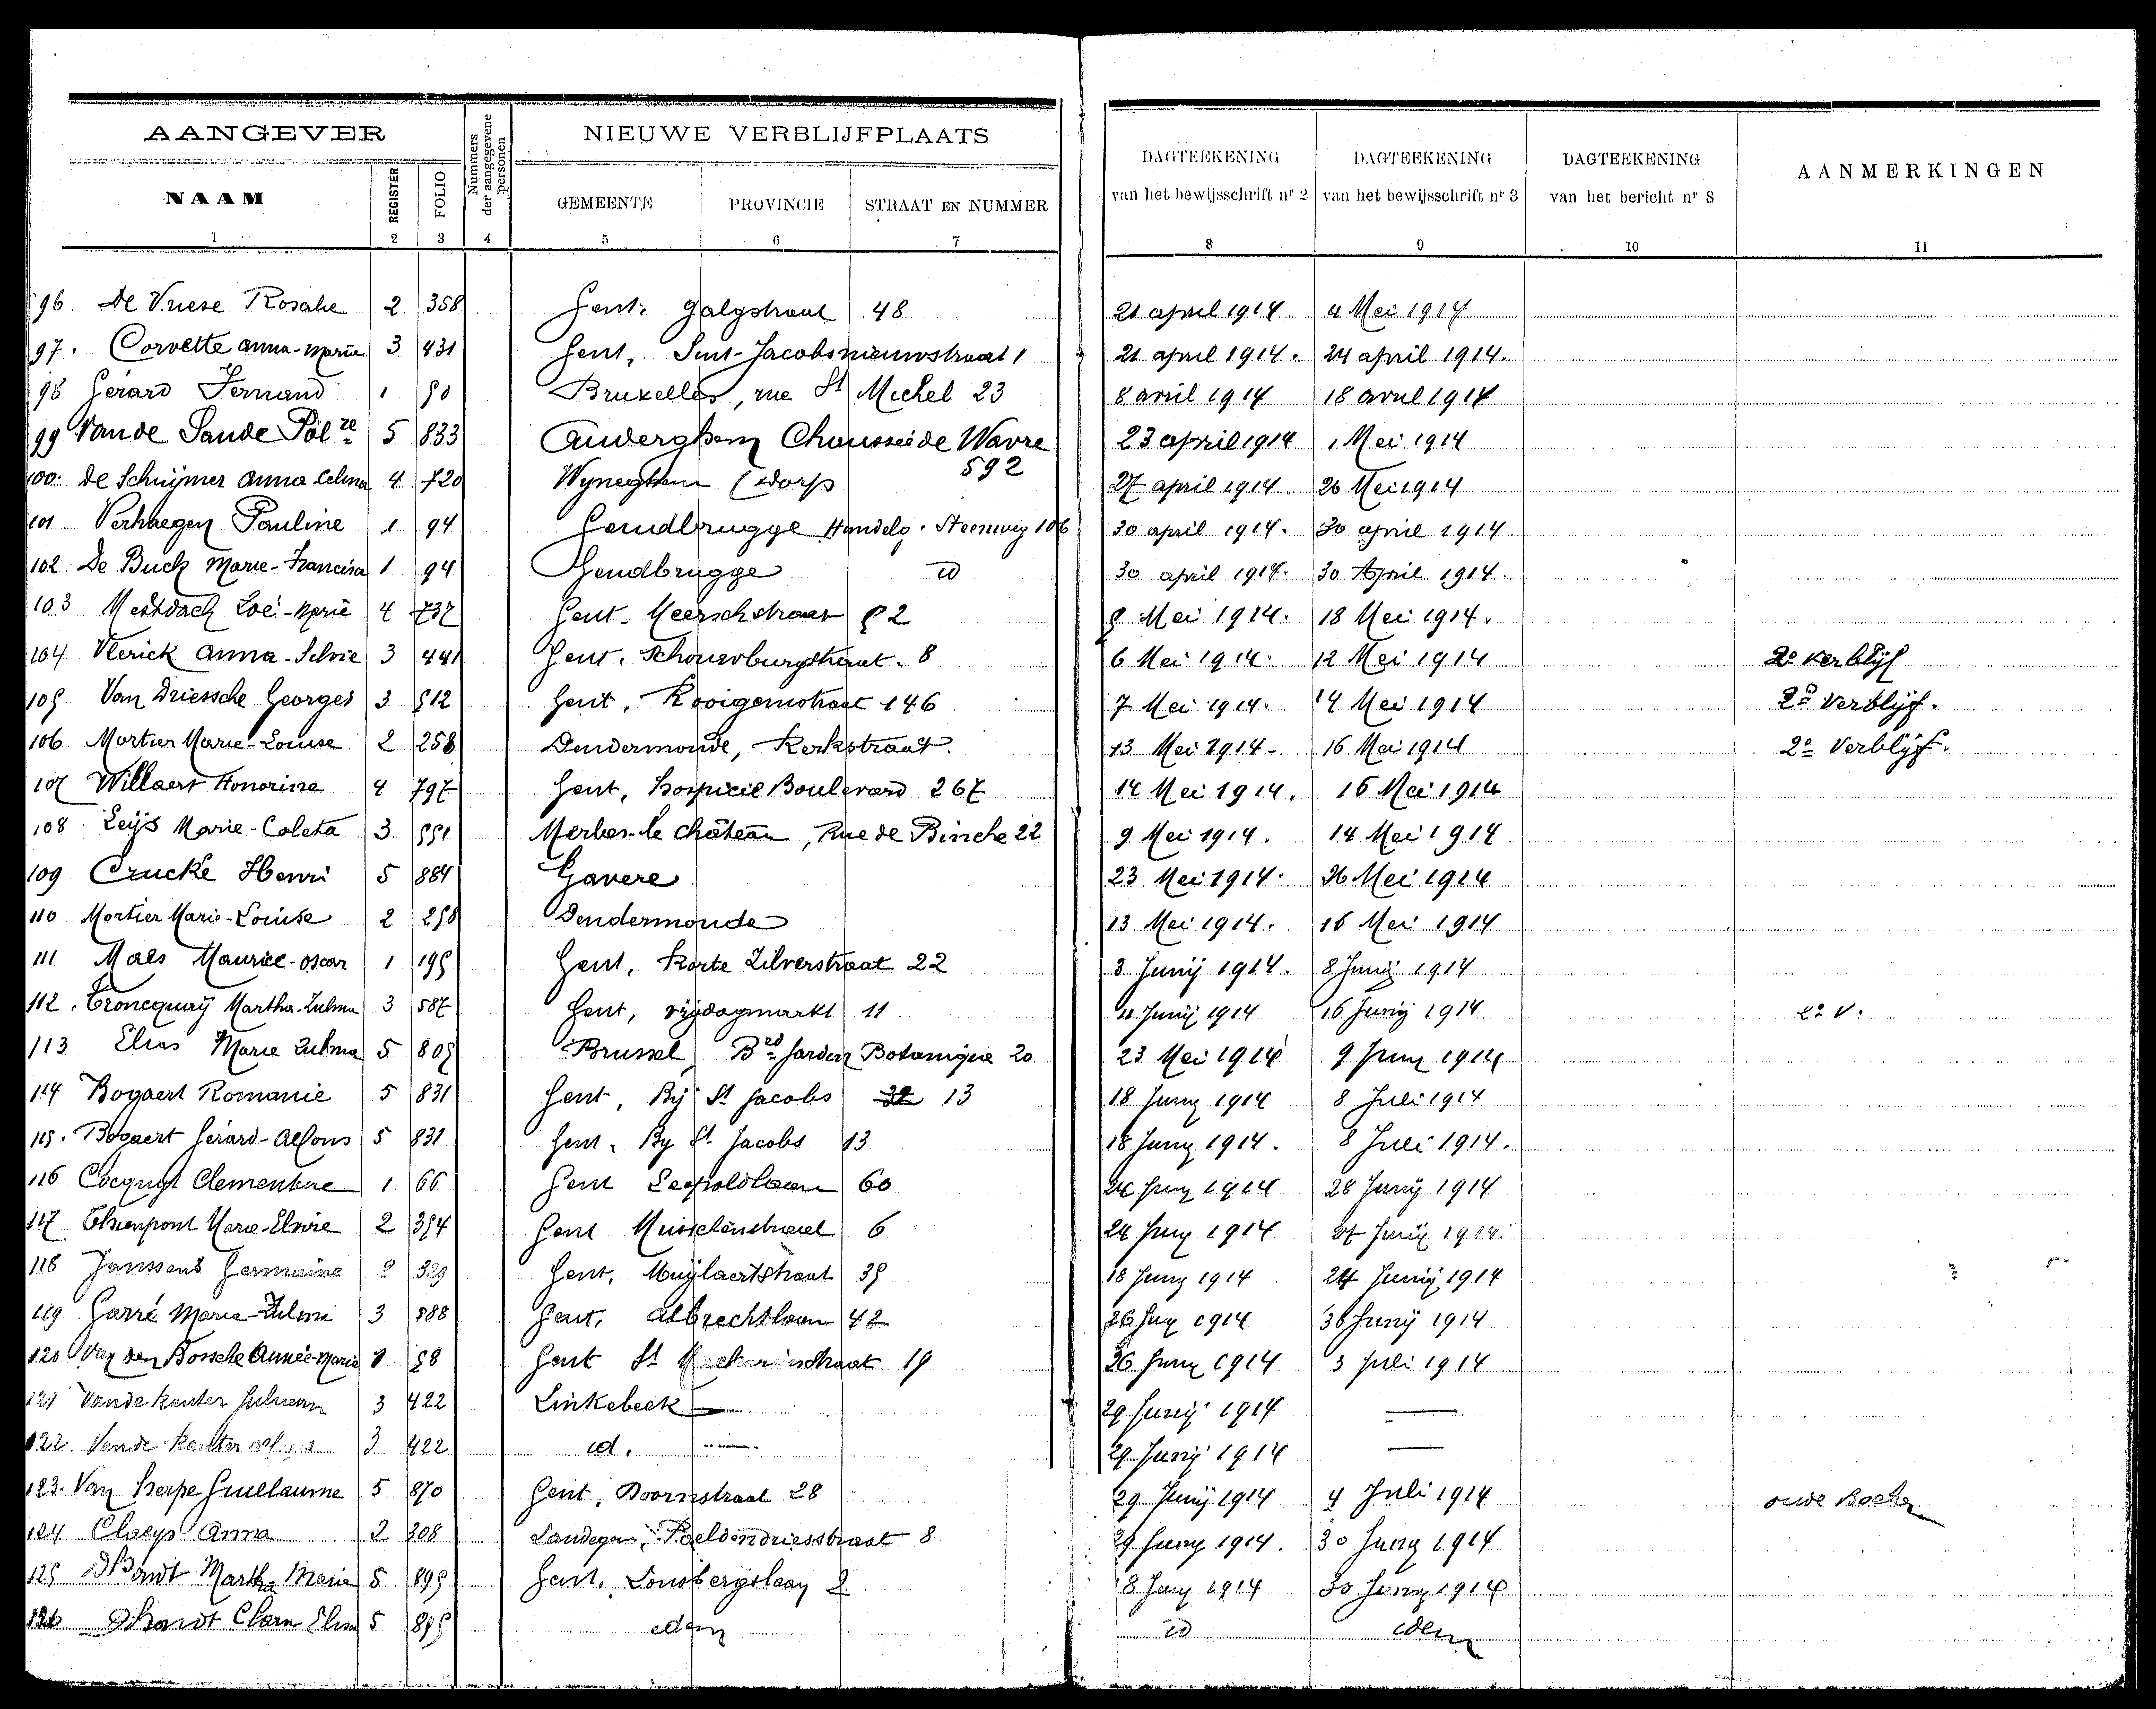 AANGEVER NIEUWE VERBLIJFPLAATS
NAAM REGISTER FOLIO Nummers der aangegevene personen GEMEENTE PROVINCIE STRAAT EN NUMMER DAGTEEKENING van het bewijsschrift nr 2 DAGTEEKENING van het bewijsschrift nr 3 DAGTEEKENING van het bericht nr 8 AANMERKINGEN
1 2 3 4 5 6 7 8 9 10 11
96. De Vriese Rosalie 2 358 Gent. Galgstraat 48 21 april 1914 4 Mei 1914
97. Corvette Anna-Maria 3 431 Gent, Sint-Jacobsnieuwstraat 1 21 april 1914. 24 april 1914.
98 Gérard Fernand 1 50 Bruxelles, rue St Michel 23 8 avril 1914 18 avril 1914
99 Van de Sande Pol re 5 833 Auderghem Chaussée de Wavre 592 23 april 1914 1 Mei 1914
100. De Schrijmer Anna Celina 4 720 Wyneghem (Dorp 27 april 1914. 26 Mei 1914
101 Verhaegen Pauline 1 94 Gendbrugge Hundelg. Steenweg 106 30 april 1914. 30 april 1914
102 De Buck Marie-Francisca 1 94 Gendbrugge id 30 april 1914. 30 April 1914.
103 Mestdach Zoë-Marie 4 737 Gent. Meerschstraat 52 5 Mei 1914. 18 Mei 1914.
104 Vlerick Anna-Silvie 3 441 Gent. Schouwburgstraat. 8 6 Mei 1914. 12 Mei 1914 2e verblijf
105 Van Driessche Georges 3 512 Gent, Rooigemstraat 146 7 Mei 1914. 14 Mei 1914 2e Verblijf.
106 Mortier Marie-Louise 2 258 Dendermonde, Kerkstraat. 13 Mei 1914. 16 Mei 1914 2e Verblijf.
107 Willaert Honorine 4 797 Gent, Hospicie Boulevard 267 14 Mei 1914. 16 Mei 1914
108 Leijs Marie-Coleta 3 551 Merbes-le château, Rue de Binche 22 9 Mei 1914. 14 Mei 1914
109 Crucke Henri 5 884 Gavere 23 Mei 1914. 26 Mei 1914
110 Mortier Marie-Louise 2 258 Dendermonde 13 Mei 1914. 16 Mei 1914
111 Maes Maurice-Oscar 1 195 Gent, Korte Zilverstraat 22 3 Junij 1914. 8 Junij 1914
112. Troncquoij Martha-Zulma 3 587 Gent, vrijdagmarkt 11 11 Junij 1914 16 Junij 1914 2e V.
113 Elias Marie Zulma 5 805 Brussel, Bd Jardin Botanique 20 23 Mei 1914 9 Juny 1914
114 Bogaert Romanie 5 831 Gent, Bij St Jacobs 13 18 Juny 1914 8 Juli 1914
115. Bogaert Gérard-Alfons 5 831 Gent. By St Jacobs 13 18 Juny 1914. 8 Juli 1914.
116 Cocquyt Clementine 1 66 Gent Leopoldlaan 60 24 Juny 1914 28 Junij 1914
117 Thienpont Marie-Elvire 2 354 Gent Musschenstraat 6 24 Juny 1914 27 Junij 1914.
118 Janssens Germaine 2 329 Gent, Muijlaertstraat 35 18 Juny 1914 24 Junij 1914
119 Garré Maria-Zulmi 3 588 Gent, Albrechtlaan 42 26 Juny 1914 30 Junij 1914
120 Van den Bossche Année-Marie 1 58 Gent St straat 19 26 Juny 1914 3 Juli 1914
121 Vandekauter Juliaan 3 422 Linkebeek — 29 Junij 1914 —
122 Vande Kauter 3 422 id. — 29 Junij 1914 —
123. Van Herpe Guillaume 5 870 Gent, Doornstraat 28 29 Junij 1914 4 Juli 1914 oude Boek
124 Claeys Anna 2 308 Landegem, Poeldendriesstraat 8 29 Juny 1914. 30 Juny 1914
125 D'Hondt Martha Maria 5 895 Gent. Lousbergslaan 2 18 Juny 1914 30 Juny 1914
126 Dhondt Clara Elisa 5 895 idem id idem